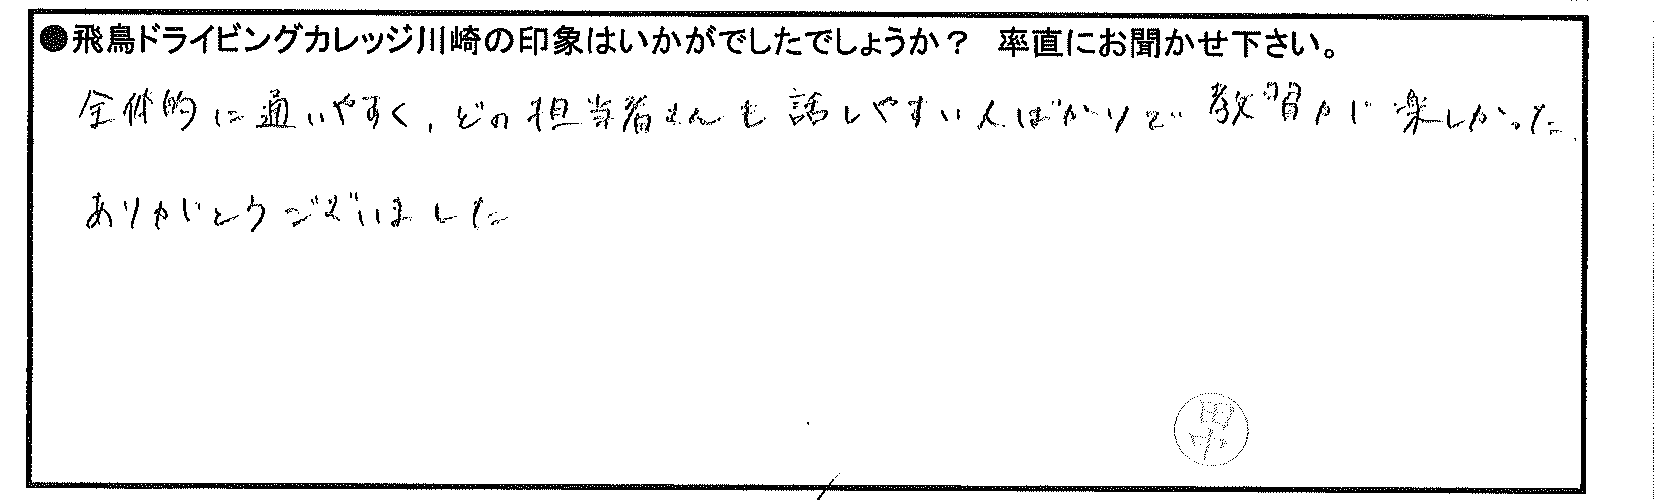 ●飛鳥ドライビングカレッジ川崎の印象はいかがでしたでしょうか？ 率直にお聞かせ下さい。
全体的に通いやすく、どの担当者さんも話しやすい人ばかりで教習が楽しかった.
ありがとうございました
田中